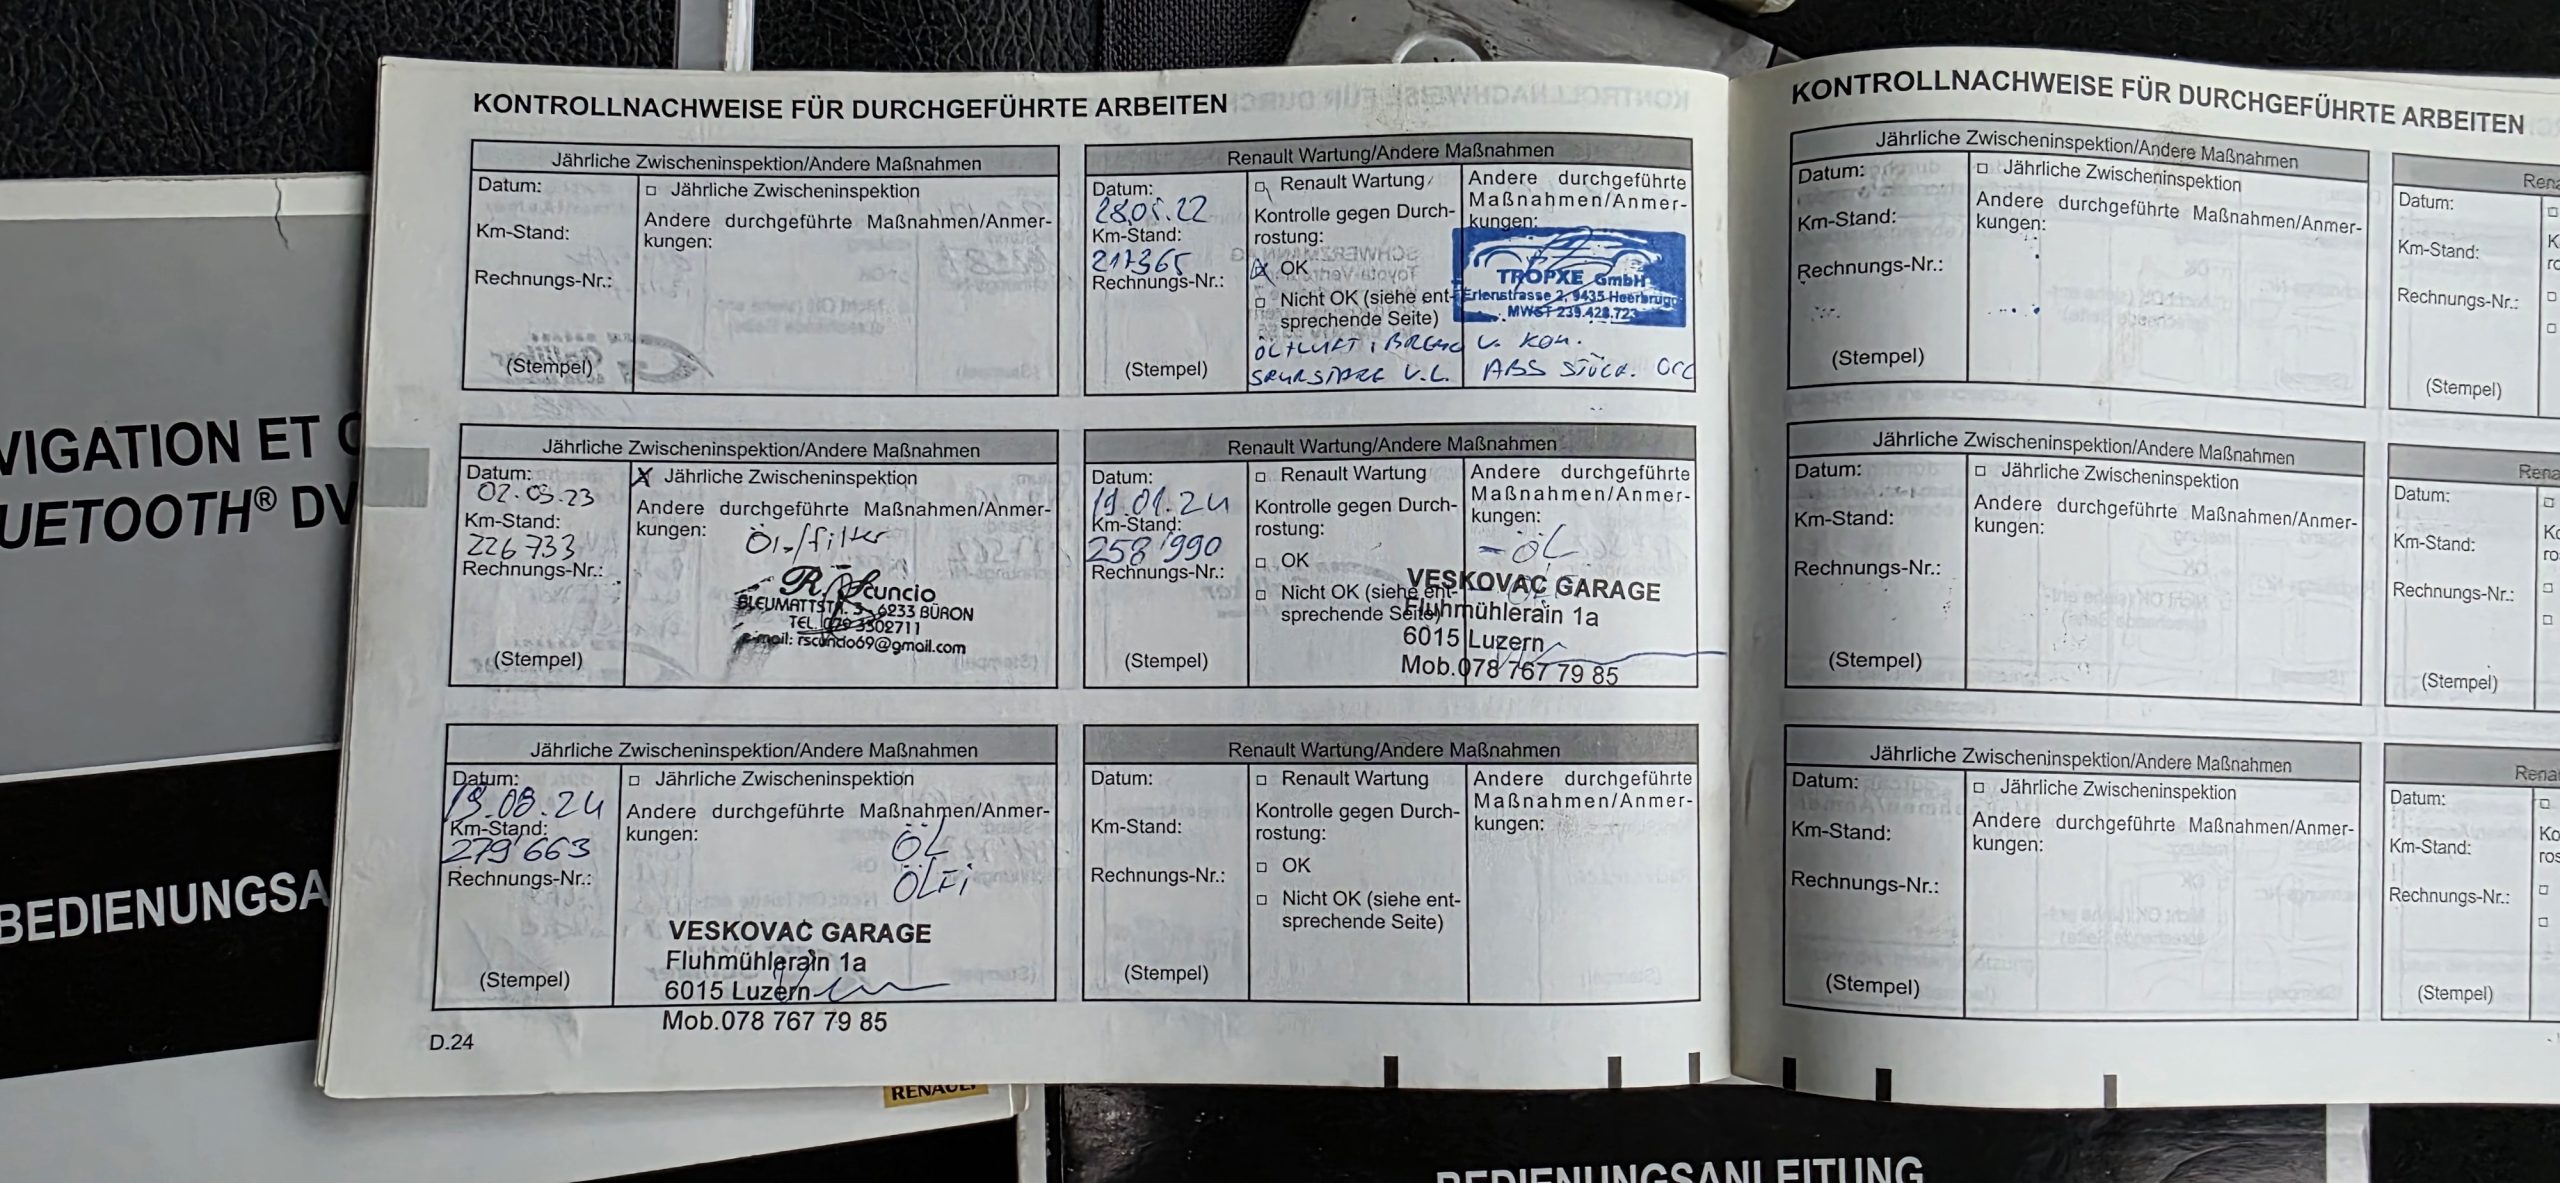 VIGATION ET
UETOOTH® DV
BEDIENUNGSA
RENAULT
BEDIENUNGSANLEITUNG
KONTROLLNACHWEISE FÜR DURCHGEFÜHRTE ARBEITEN
Jährliche Zwischeninspektion/Andere Maßnahmen
Datum:
□ Jährliche Zwischeninspektion
Andere durchgeführte Maßnahmen/Anmer-
kungen:
Km-Stand:
Rechnungs-Nr.:
(Stempel)
Renault Wartung/Andere Maßnahmen
Datum:
28.05.22
Km-Stand:
217365
Rechnungs-Nr.:
(Stempel)
□ Renault Wartung
Kontrolle gegen Durch-
rostung:
OK
□ Nicht OK (siehe ent-
sprechende Seite)
Andere durchgeführte
Maßnahmen/Anmer-
kungen:
TROPXE GmbH
Erlenstrasse 2, 9435 Heerbrugg
MWST 239.428.723
V. KON.
V.L. ABS
Jährliche Zwischeninspektion/Andere Maßnahmen
Datum:
02.03.23
Km-Stand:
226733
Rechnungs-Nr.:
(Stempel)
X Jährliche Zwischeninspektion
Andere durchgeführte Maßnahmen/Anmer-
kungen:
Öl-/filter
R. Scuncio
BLEUMATTSTR. 3 - 6233 BÜRON
TEL. 079 3302711
e-mail: rscuncio69@gmail.com
Renault Wartung/Andere Maßnahmen
Datum:
19.01.24
Km-Stand:
258'990
Rechnungs-Nr.:
(Stempel)
□ Renault Wartung
Kontrolle gegen Durch-
rostung:
□ OK
□ Nicht OK (siehe ent-
sprechende Seite)
Andere durchgeführte
Maßnahmen/Anmer-
kungen:
- ÖL
VESKOVAC GARAGE
Fluhmühlerain 1a
6015 Luzern
Mob.078 767 79 85
Jährliche Zwischeninspektion/Andere Maßnahmen
Datum:
19.08.24
Km-Stand:
279'663
Rechnungs-Nr.:
(Stempel)
□ Jährliche Zwischeninspektion
Andere durchgeführte Maßnahmen/Anmer-
kungen:
ÖL
ÖLFi
VESKOVAC GARAGE
Fluhmühlerain 1a
6015 Luzern
Mob.078 767 79 85
Renault Wartung/Andere Maßnahmen
Datum:
Km-Stand:
Rechnungs-Nr.:
(Stempel)
□ Renault Wartung
Kontrolle gegen Durch-
rostung:
□ OK
□ Nicht OK (siehe ent-
sprechende Seite)
Andere durchgeführte
Maßnahmen/Anmer-
kungen:
D.24
KONTROLLNACHWEISE FÜR DURCHGEFÜHRTE ARBEITEN
Jährliche Zwischeninspektion/Andere Maßnahmen
Datum:
Km-Stand:
Rechnungs-Nr.:
(Stempel)
□ Jährliche Zwischeninspektion
Andere durchgeführte Maßnahmen/Anmer-
kungen:
Rena
Datum:
Km-Stand:
Rechnungs-Nr.:
(Stempel)
Jährliche Zwischeninspektion/Andere Maßnahmen
Datum:
Km-Stand:
Rechnungs-Nr.:
(Stempel)
□ Jährliche Zwischeninspektion
Andere durchgeführte Maßnahmen/Anmer-
kungen:
Rena
Datum:
Km-Stand:
Rechnungs-Nr.:
(Stempel)
Jährliche Zwischeninspektion/Andere Maßnahmen
Datum:
Km-Stand:
Rechnungs-Nr.:
(Stempel)
□ Jährliche Zwischeninspektion
Andere durchgeführte Maßnahmen/Anmer-
kungen:
Rena
Datum:
Km-Stand:
Rechnungs-Nr.:
(Stempel)